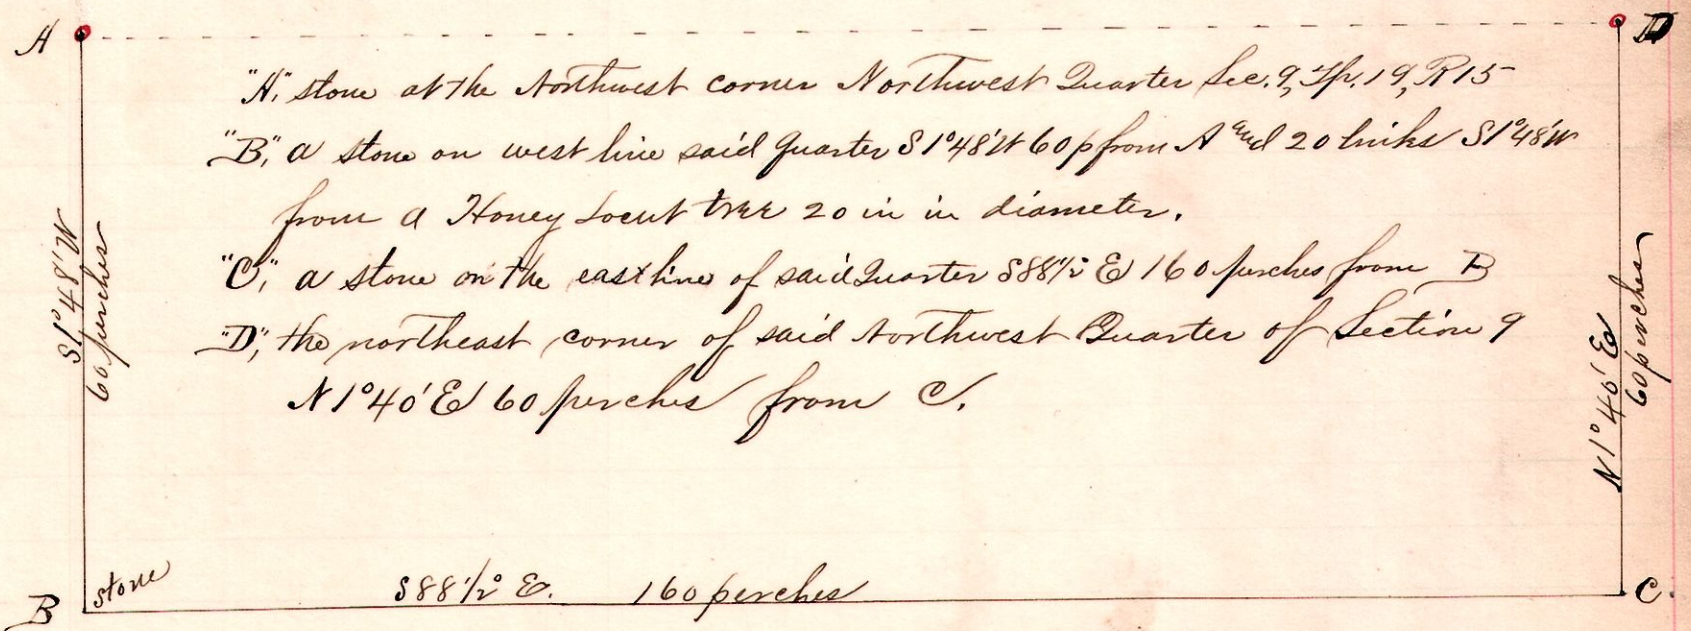 A
D
"A," stone at the Northwest corner Northwest Quarter Sec. 9, Tp. 19, R 15
"B," a stone on west line said Quarter S 1° 48' W 60 p from A and 20 links S 1° 48' W
from a Honey Locut tree 20 in in diameter.
"C," a stone on the east line of said Quarter S 88 1/2° E 160 perches from B
"D", the northeast corner of said Northwest Quarter of Section 9
N 1° 40' E 60 perches from C.
S 1° 48' W
60 perches
N 1° 40' E
60 perches
stone
S 88 1/2° E. 160 perches
B
C.